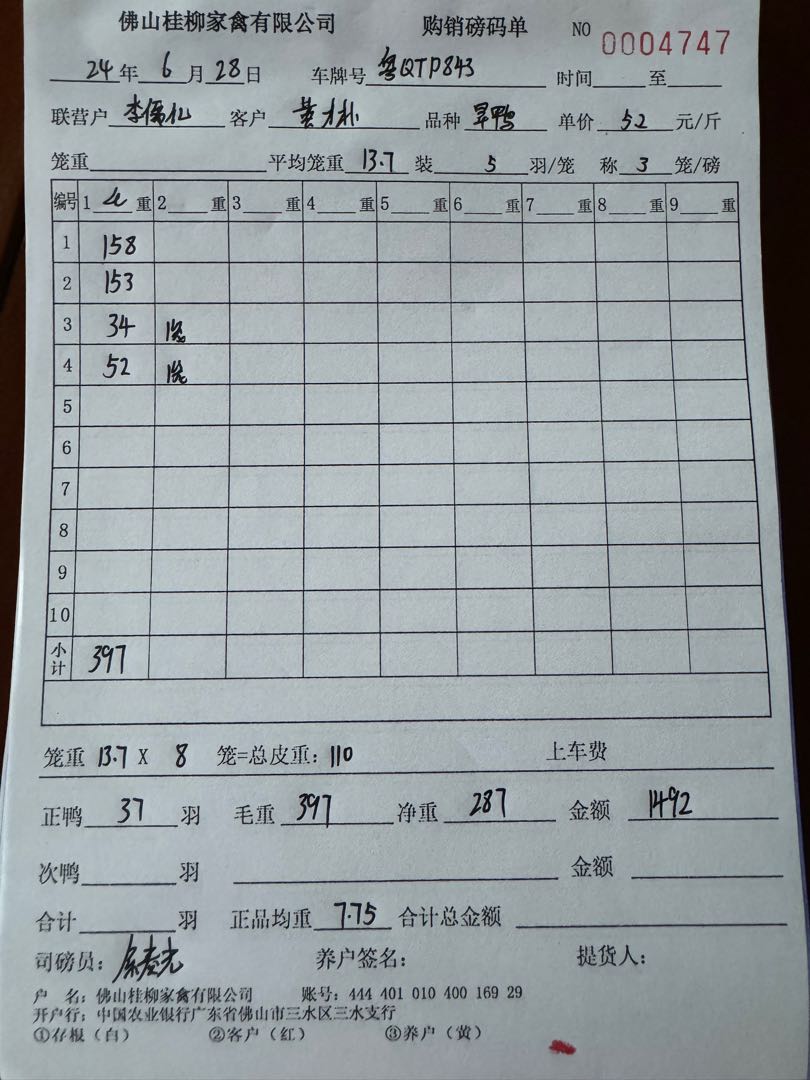 佛山桂柳家禽有限公司 购销磅码单 NO 0004747
24年 6月 28日 车牌号 粤QTP843 时间 至
联营户 李儒礼 客户 品种 旱鸭 单价 5.2 元/斤
笼重 平均笼重 13.7 装 5 羽/笼 称 3 笼/磅
编号 1 重 2 重 3 重 4 重 5 重 6 重 7 重 8 重 9 重
1 158
2 153
3 34 1笼
4 52 1笼
5
6
7
8
9
10
小计 397
笼重 13.7 X 8 笼=总皮重: 110 上车费
正鸭 37 羽 毛重 397 净重 287 金额 1492
次鸭 羽 金额
合计 羽 正品均重 7.75 合计总金额
司磅员: 养户签名: 提货人:
户 名: 佛山桂柳家禽有限公司 账号: 444 401 010 400 169 29
开户行: 中国农业银行广东省佛山市三水区三水支行
①存根（白） ②客户（红） ③养户（黄）